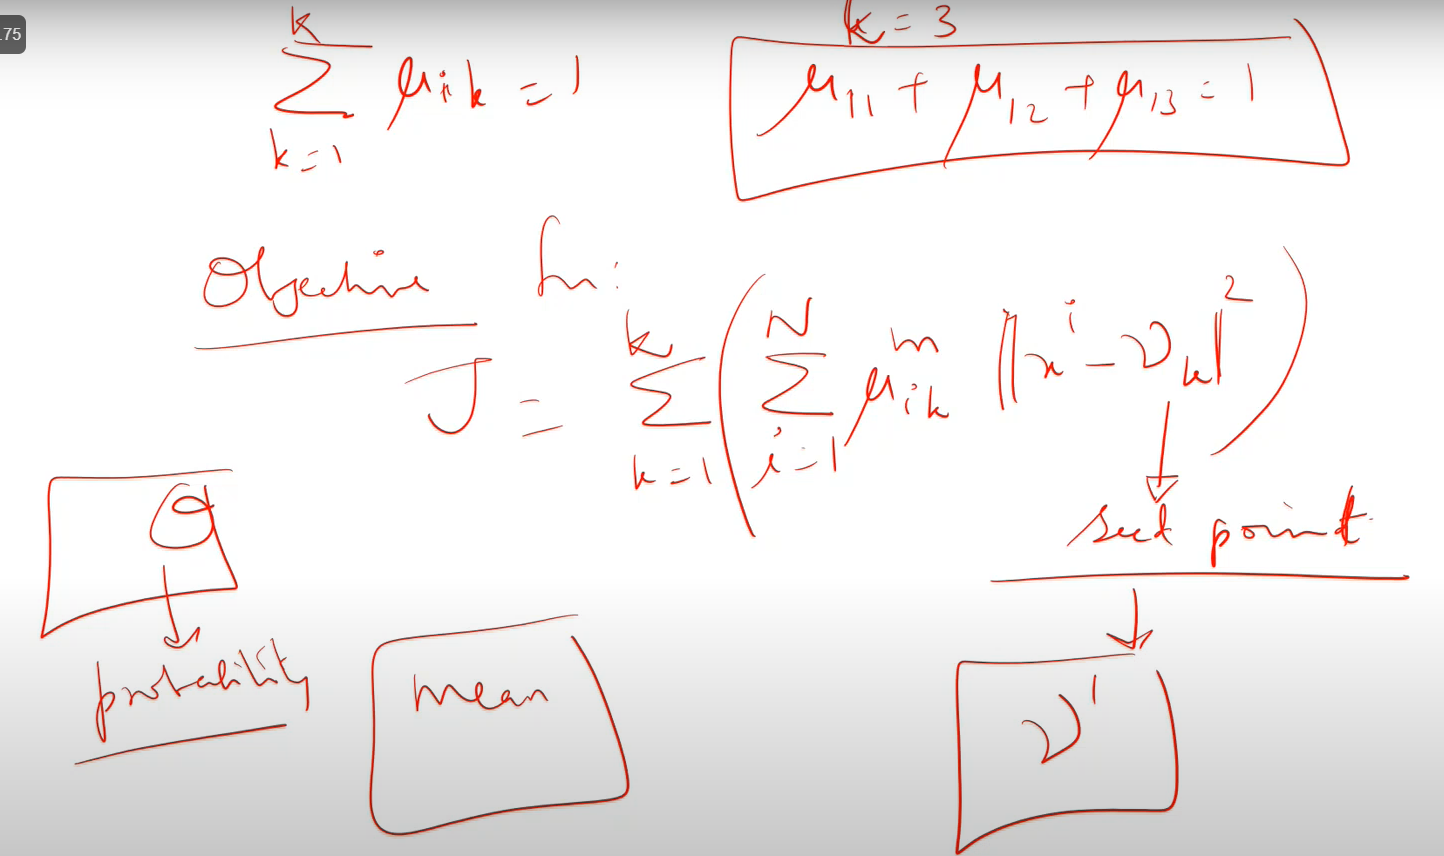 .75
K
∑ μik = 1
k=1
k = 3
μ11 + μ12 + μ13 = 1
Objective fn:
J = ∑_{k=1}^{K} ( ∑_{i=1}^{N} μ_{ik}^{m} ‖x^{i} − ν_{k}‖^{2} )
seed point
probability
mean
ν^{1}